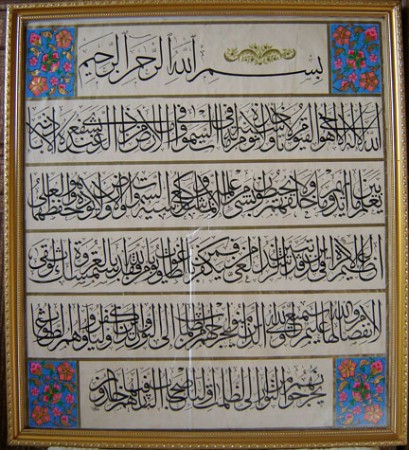 بسم الله الرحمن الرحيم
الله لا اله الا هو الحي القيوم لا تأخذه سنة ولا نوم له ما في السموات وما في الارض من ذا الذي يشفع عنده الا باذنه
يعلم ما بين ايديهم وما خلفهم ولا يحيطون بشيء من علمه الا بما شاء وسع كرسيه السموات والارض ولا يؤده حفظهما وهو العلي
العظيم لا اكراه في الدين قد تبين الرشد من الغي فمن يكفر بالطاغوت ويؤمن بالله فقد استمسك بالعروة الوثقى
لا انفصام لها والله سميع عليم الله ولي الذين آمنوا يخرجهم من الظلمات الى النور والذين كفروا اولياؤهم الطاغوت
يخرجونهم من النور الى الظلمات اولئك اصحاب النار هم فيها خالدون